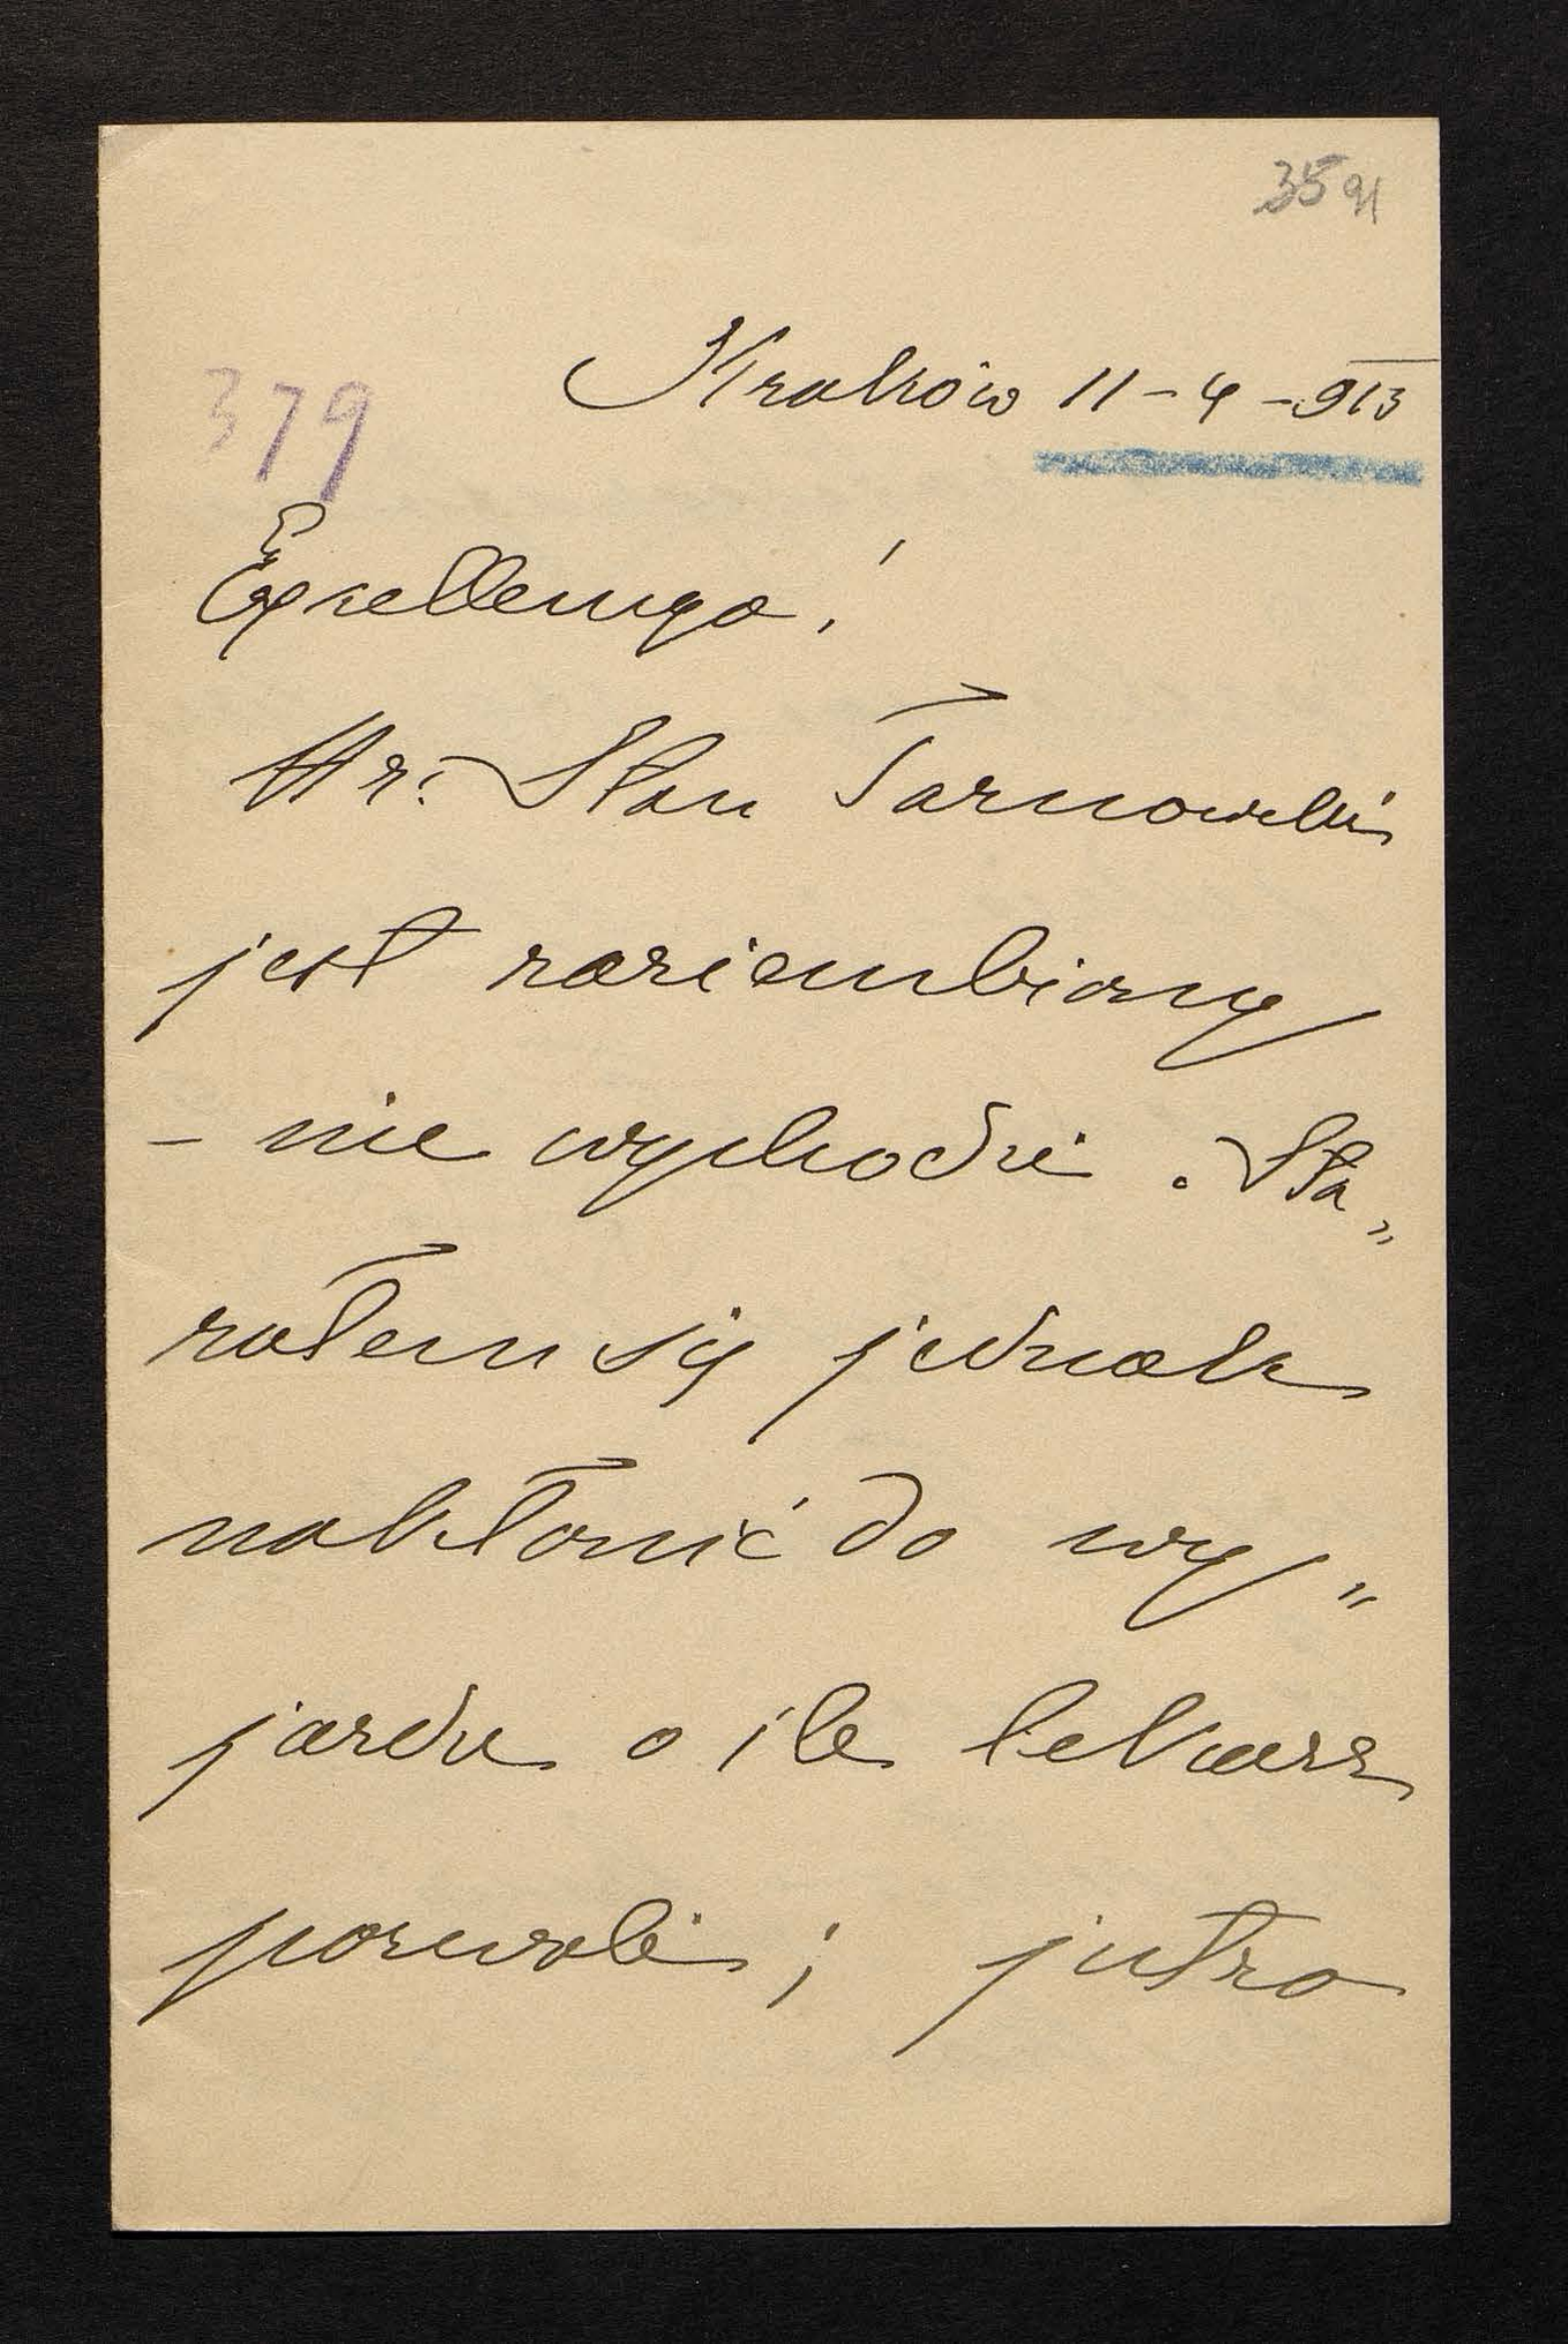 35 91
Kraków 11-4-913
379
Exzellencyo!
Hr. Stan Tarnowski
jest zaziembiony
- nie wychodzi. Sta„
rałem się jednak
nakłonić do wy„
jazdu o ile lekarz
pozwoli; jutro